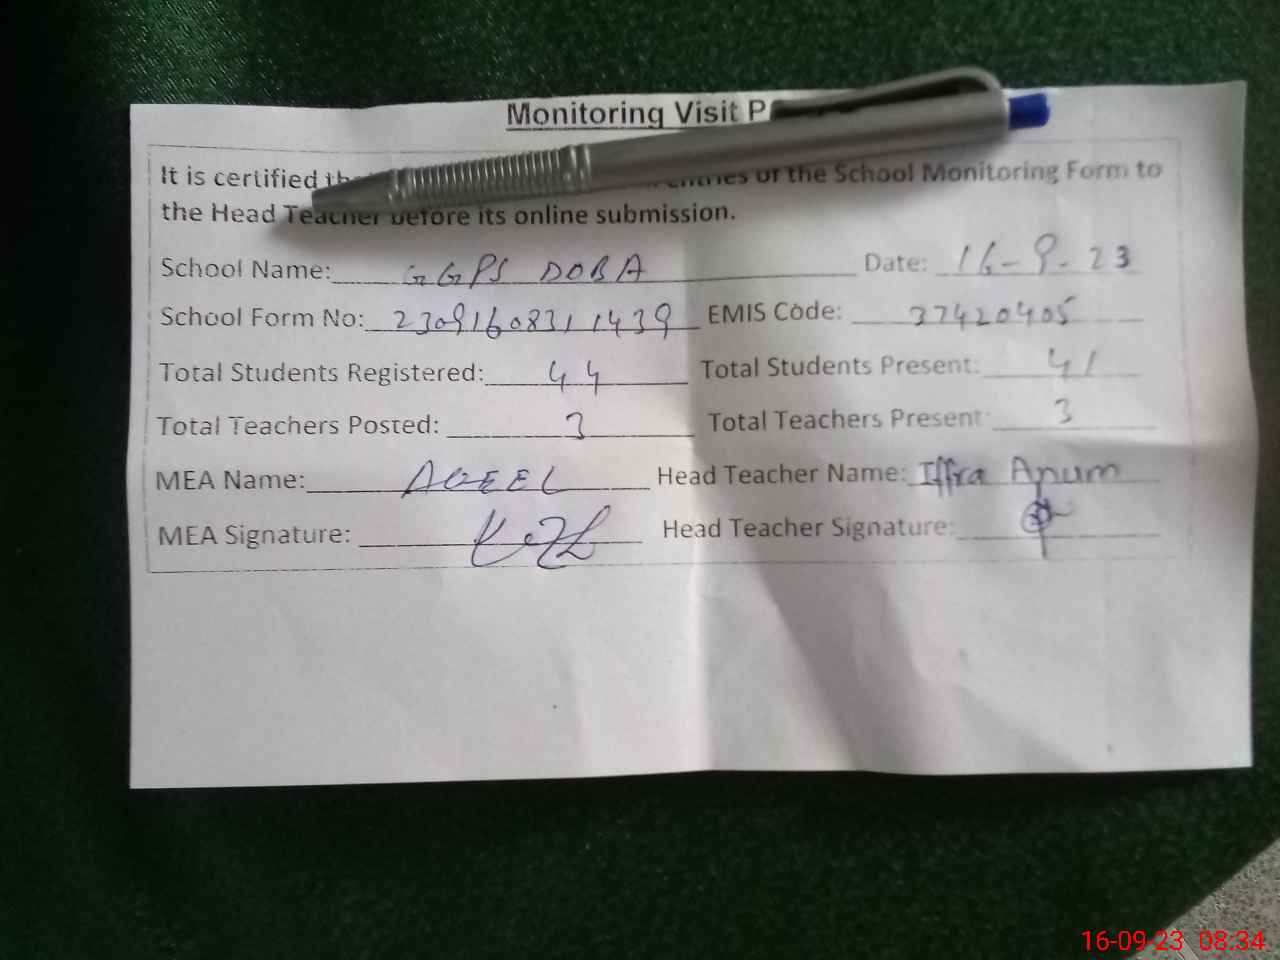 Monitoring Visit P
It is certified entries of the School Monitoring Form to
the Head Teacher before its online submission.
School Name: GGPS DOBA Date: 16-9-23
School Form No: 23091608311439 EMIS Code: 37420405
Total Students Registered: 44 Total Students Present: 41
Total Teachers Posted: 3 Total Teachers Present: 3
MEA Name: AQEEL Head Teacher Name: Iffra Anum
MEA Signature: Head Teacher Signature:
16-09-23 08:34